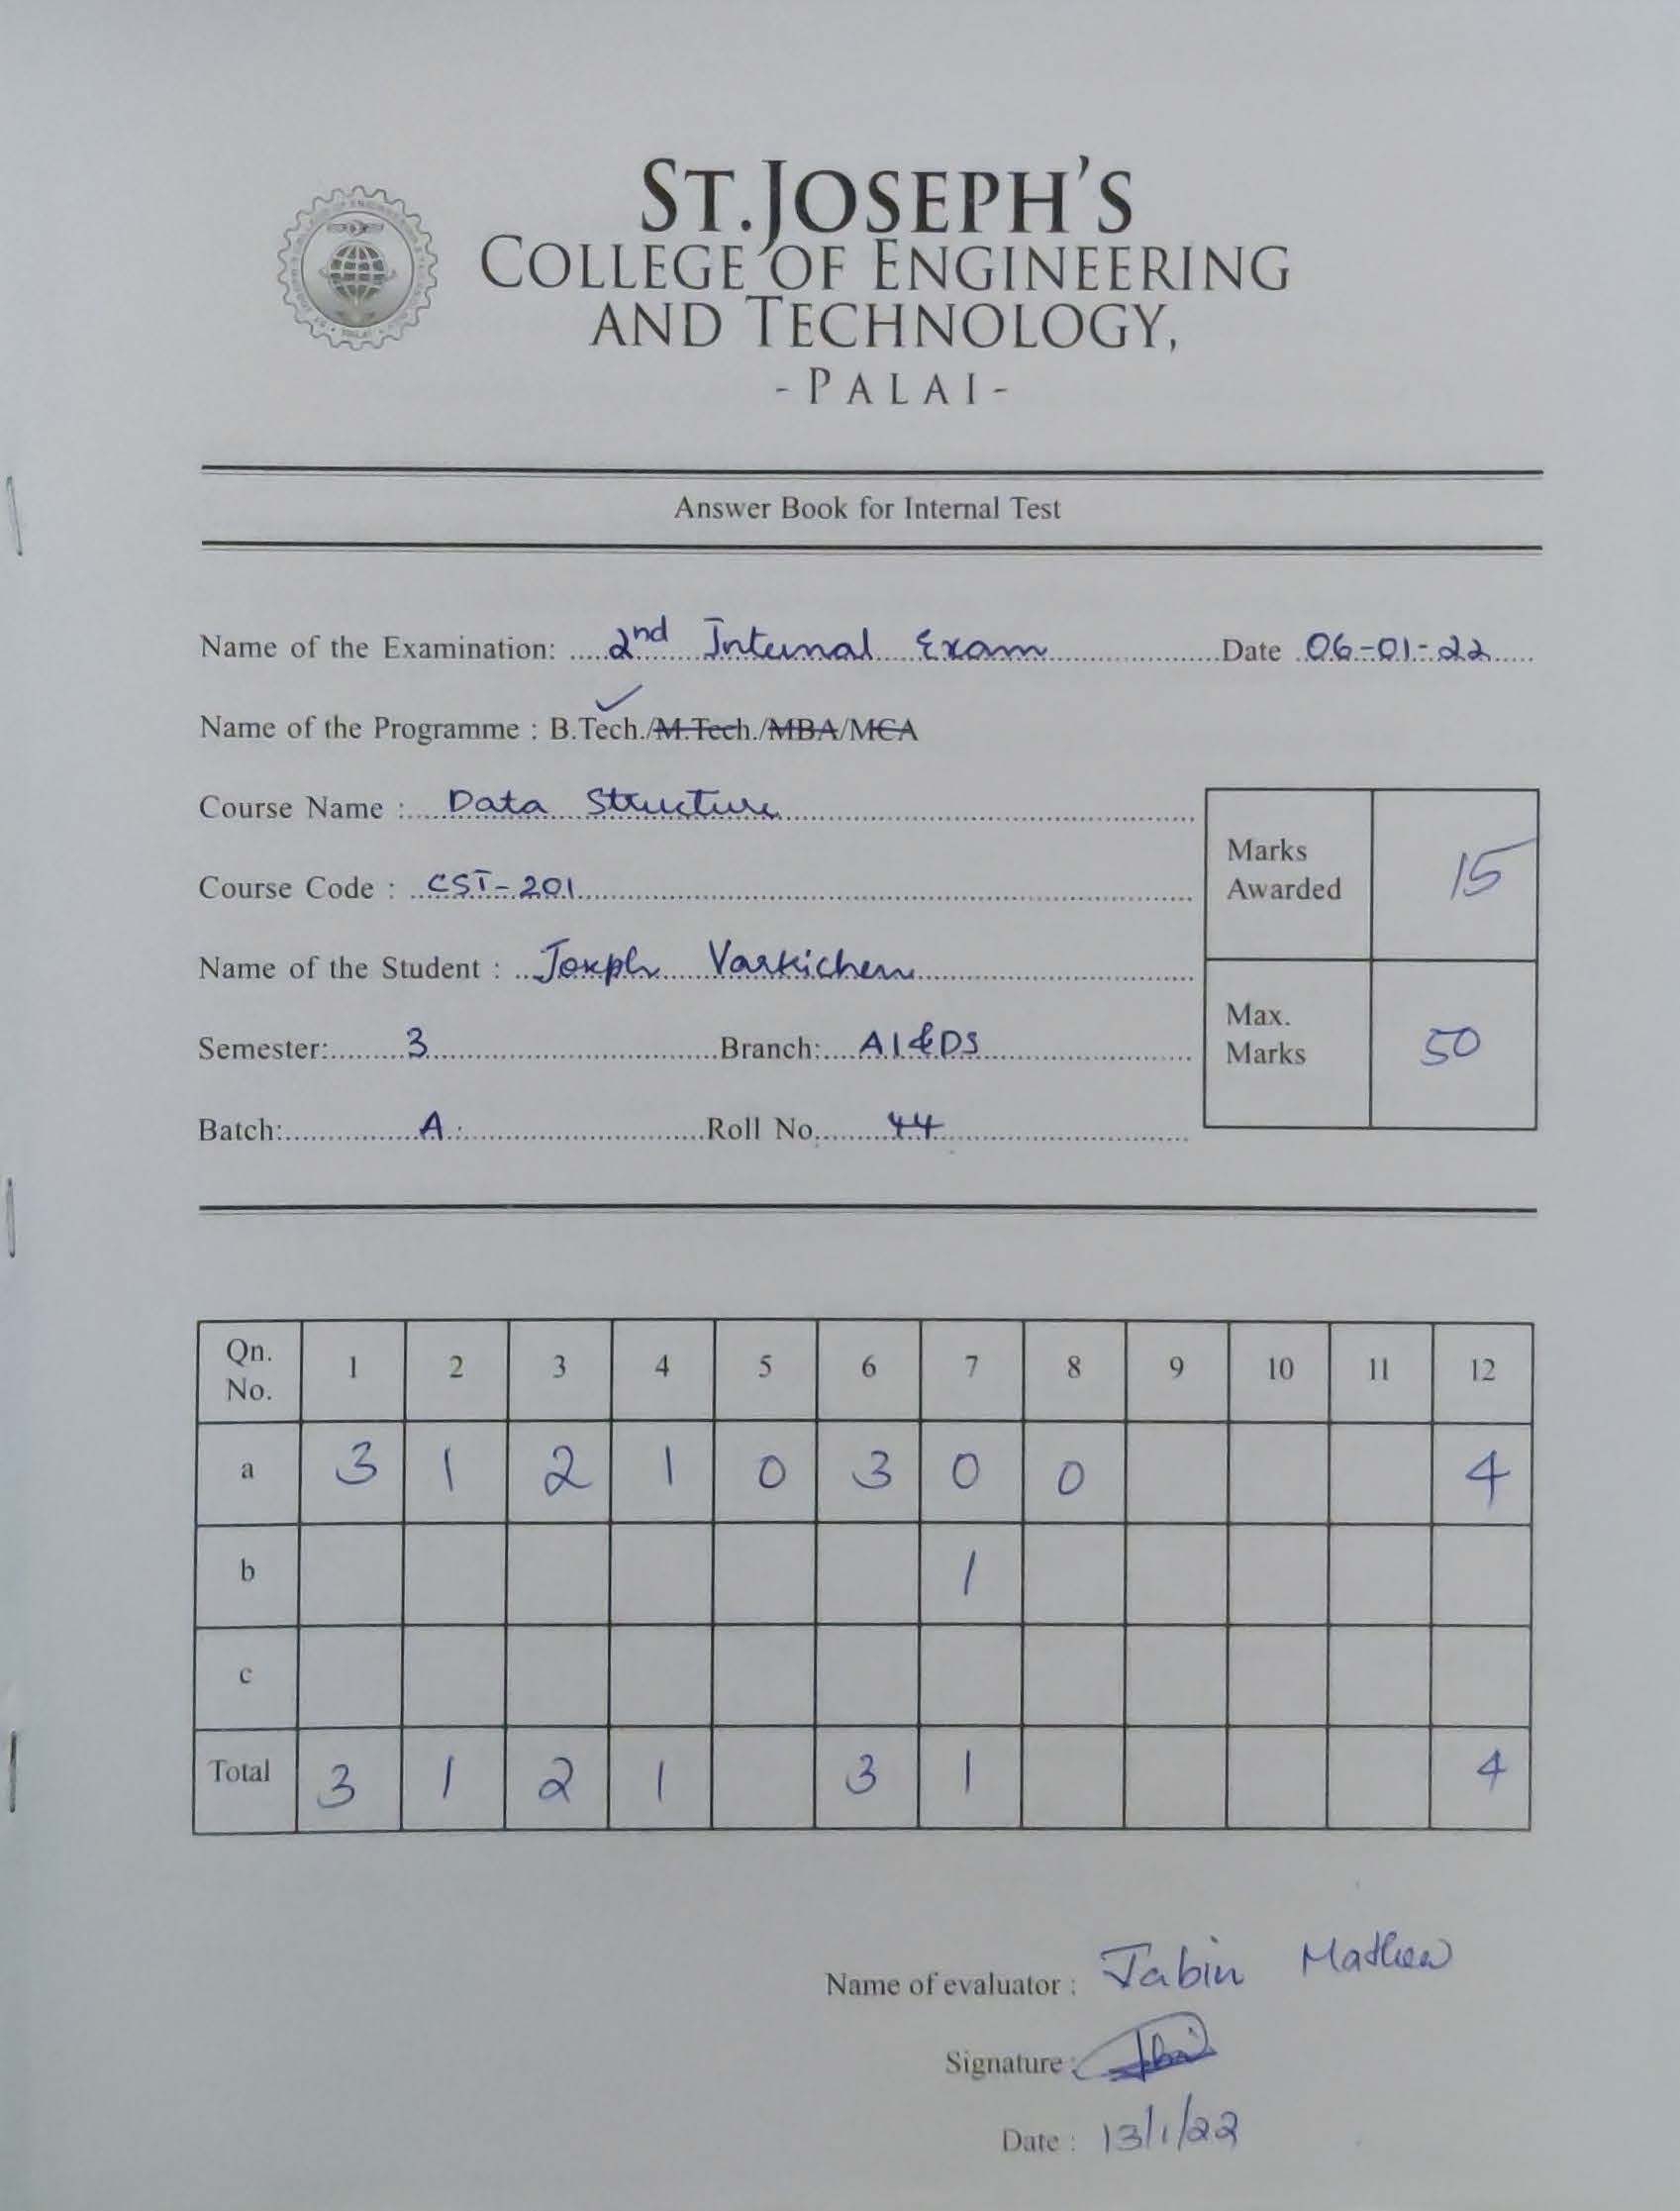 ST.JOSEPH'S
COLLEGE OF ENGINEERING
AND TECHNOLOGY,
-PALAI-
Answer Book for Internal Test
Name of the Examination: 2nd Internal Exam Date 06-01-22
Name of the Programme : B.Tech./M.Tech./MBA/MCA
Course Name : Data Structure
Course Code : CST-201
Name of the Student : Joseph Varkichen
Semester: 3 Branch: AI&DS
Batch: A Roll No. 44
Marks Awarded 15
Max. Marks 50
Qn. No. 1 2 3 4 5 6 7 8 9 10 11 12
a 3 1 2 1 0 3 0 0 4
b 1
c
Total 3 1 2 1 3 1 4
Name of evaluator : Jabin Mathew
Signature :
Date : 13/1/22